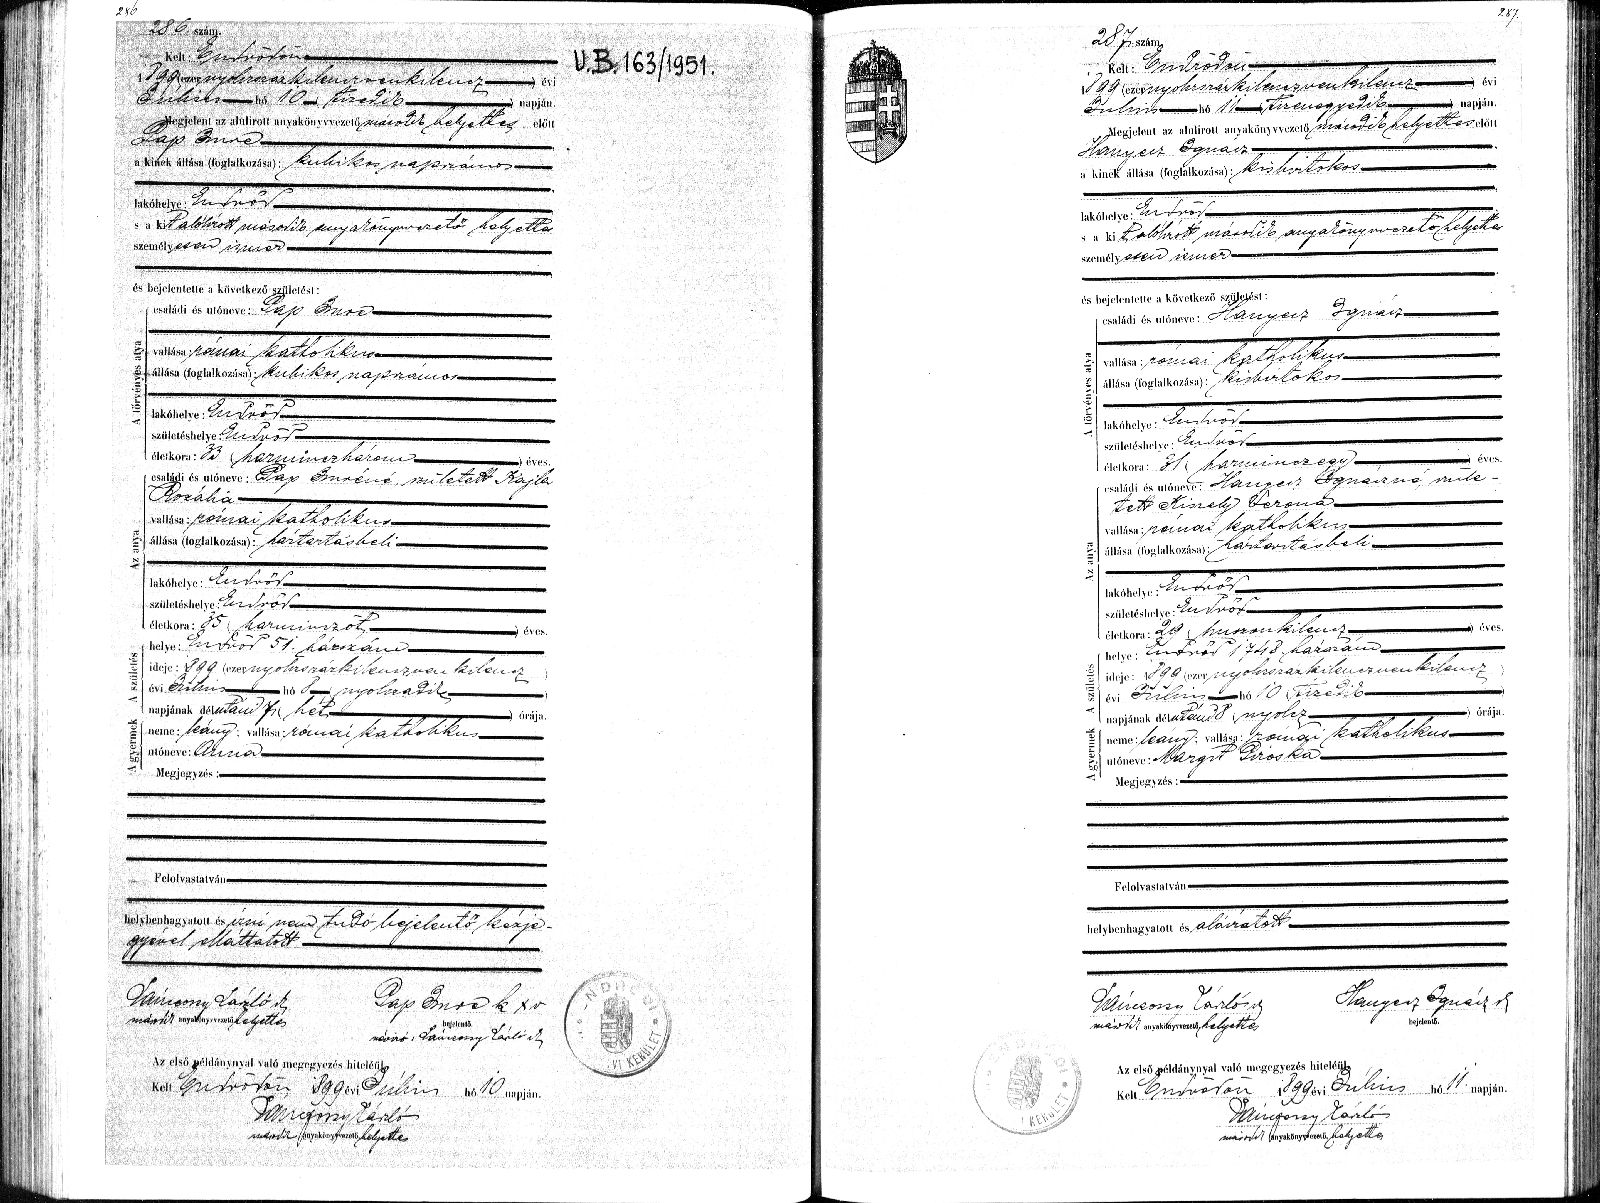 286
286. szám.
Kelt: Endrődön
1899 (ezernyolcszázkilenczvenkilencz) évi
Július hó 10 (tizedik) napján.
Megjelent az alulirott anyakönyvvezető második helyettes előtt
Pap Imre
a kinek állása (foglalkozása): kubikos napszámos
lakóhelye: Endrőd
s a kit alólírott második anyakönyvvezető helyettes
személyesen ismer
és bejelentette a következő születést:
A törvényes atya
családi és utóneve: Pap Imre
vallása: római katholikus
állása (foglalkozása): kubikos napszámos
lakóhelye: Endrőd
születéshelye: Endrőd
életkora: 33 (harminczhárom) éves.
Az anya
családi és utóneve: Pap Imréné, született Kajla
Rozália
vallása: római katholikus
állása (foglalkozása): háztartásbeli
lakóhelye: Endrőd
születéshelye: Endrőd
életkora: 35 (harminczöt) éves.
A születés
helye: Endrőd 51. házszám
ideje: 1899 (ezernyolcszázkilenczvenkilencz)
évi Július hó 8 (nyolczadik)
napjának délutáni 7 (hét) órája.
A gyermek
neme: leány; vallása: római katholikus
utóneve: Anna
Megjegyzés:
Felolvastatván
helybenhagyatott és írni nem tudó bejelentő kézje-
gyével elláttatott
László
második anyakönyvvezető helyettes
Pap Imre k x v
bejelentő.
Az első példánynyal való megegyezés hiteléül.
Kelt Endrődön 1899 évi Július hó 10 napján.
László
második anyakönyvvezető helyettes
V.B. 163/1951.
VI KERÜLET
287.
287. szám.
Kelt: Endrődön
1899 (ezernyolcszázkilenczvenkilencz) évi
Július hó 11 (tizenegyedik) napján.
Megjelent az alulirott anyakönyvvezető második helyettes előtt
Hanyecz Ignácz
a kinek állása (foglalkozása): kisbirtokos
lakóhelye: Endrőd
s a kit alólírott második anyakönyvvezető helyettes
személyesen ismer
és bejelentette a következő születést:
A törvényes atya
családi és utóneve: Hanyecz Ignácz
vallása: római katholikus
állása (foglalkozása): kisbirtokos
lakóhelye: Endrőd
születéshelye: Endrőd
életkora: 31 (harminczegy) éves.
Az anya
családi és utóneve: Hanyecz Ignáczné, szüle-
tett Kiszely Verona
vallása: római katholikus
állása (foglalkozása): háztartásbeli
lakóhelye: Endrőd
születéshelye: Endrőd
életkora: 29 (huszonkilencz) éves.
A születés
helye: Endrőd 1748 házszám
ideje: 1899 (ezernyolcszázkilenczvenkilencz)
évi Július hó 10 (tizedik)
napjának délutáni 8 (nyolcz) órája.
A gyermek
neme: leány; vallása: római katholikus
utóneve: Margit Piroska
Megjegyzés:
Felolvastatván
helybenhagyatott és aláíratott
László
második anyakönyvvezető helyettes
Hanyecz Ignácz
bejelentő.
Az első példánynyal való megegyezés hiteléül.
Kelt Endrődön 1899 évi Július hó 11 napján.
László
második anyakönyvvezető helyettes
KERÜLET